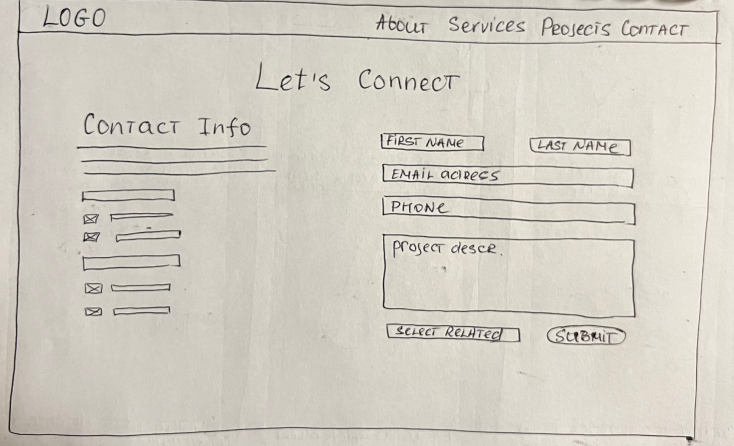 LOGO
About Services Peojects Contact
Let's Connect
Contact Info
FIRST NAMe
LAST NAMe
EMAIL adress
PHONe
project desce.
SELECT RELATED
SUBMIT